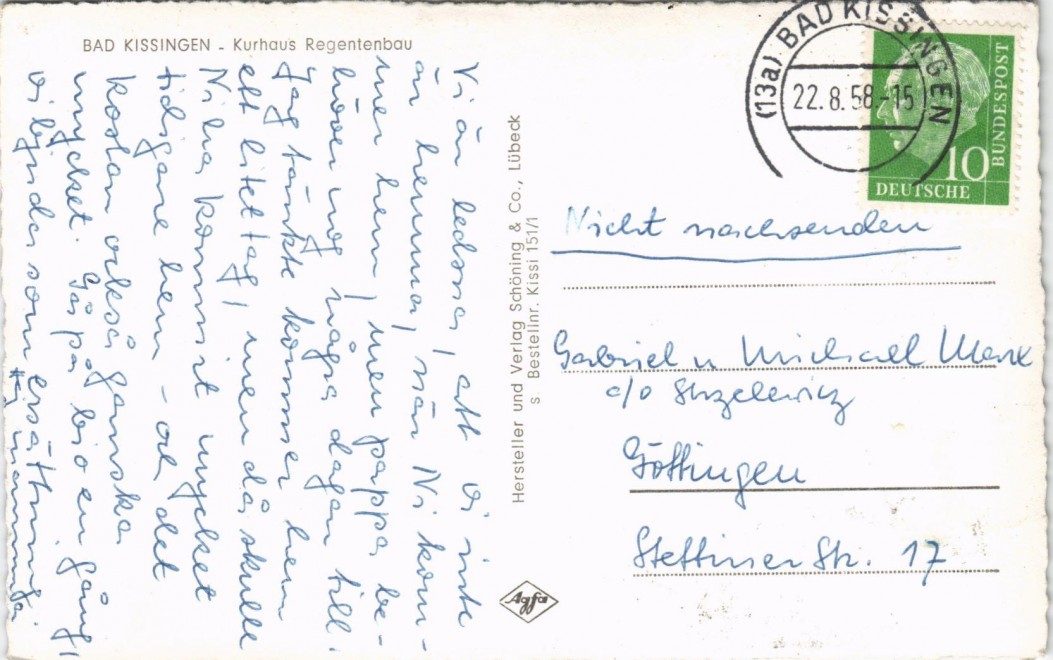 BAD KISSINGEN - Kurhaus Regentenbau
Vi är ledsna, att vi inte
är hemma, när Ni kom-
mer hem, men pappa be-
höver nog några dagar till.
Jag tänkte komma hem
ett litet tag, men då skulle
Ni ha kommit mycket
tidigare hem - och det
kostar också ganska
mycket. Gå på bio en gång,
vi bjuder som ersättning!
Hej mamma
Hersteller und Verlag Schöning & Co., Lübeck
s Bestellnr. Kissi 151/1
Agfa
(13a) BAD KISSINGEN
22.8.58.-15
10
DEUTSCHE
BUNDESPOST
Nicht nachsenden
Gabriel u Michael Mark
c/o Strzelewicz
Göttingen
Stettiner Str. 17